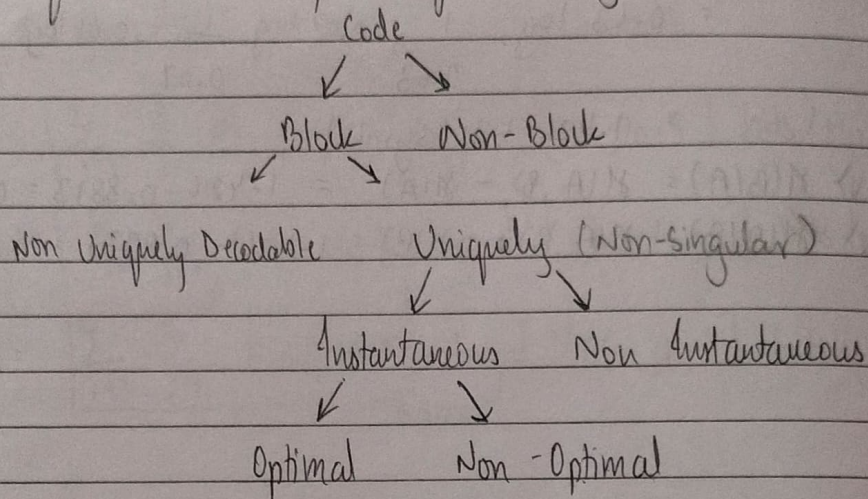 Code
Block Non-Block
Non Uniquely Decodable Uniquely (Non-Singular)
Instantaneous Non Instantaneous
Optimal Non-Optimal